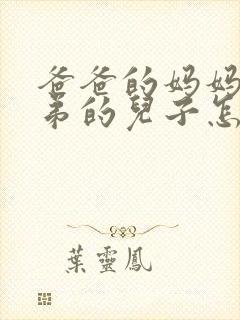 爸爸的妈妈
弟的兒子怎
葉靈鳳